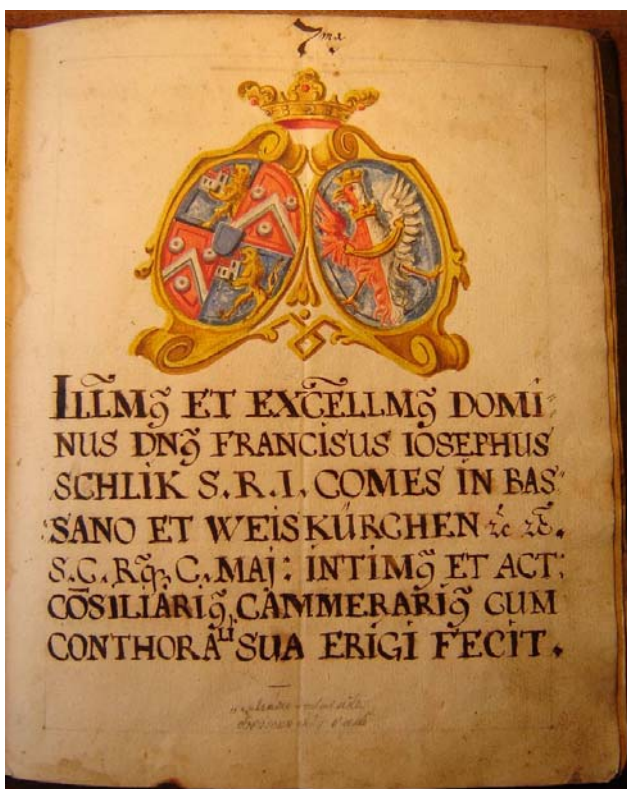 7ma
ILL̃Mꝯ ET EXCẼLLMꝯ DOMI=
NUS DNꝯ̃ FRANCISUS IOSEPHUS
SCHLIK S.R.I. COMES IN BAS=
SANO ET WEISKÜRCHEN ꝛc ꝛc.
S.C.Rq̃, C. MAJ: INTIMꝯ ET ACT:
CO͞SILIARIꝯ, CAMMERARIꝯ CUM
CONTHORALI SUA ERIGI FECIT.